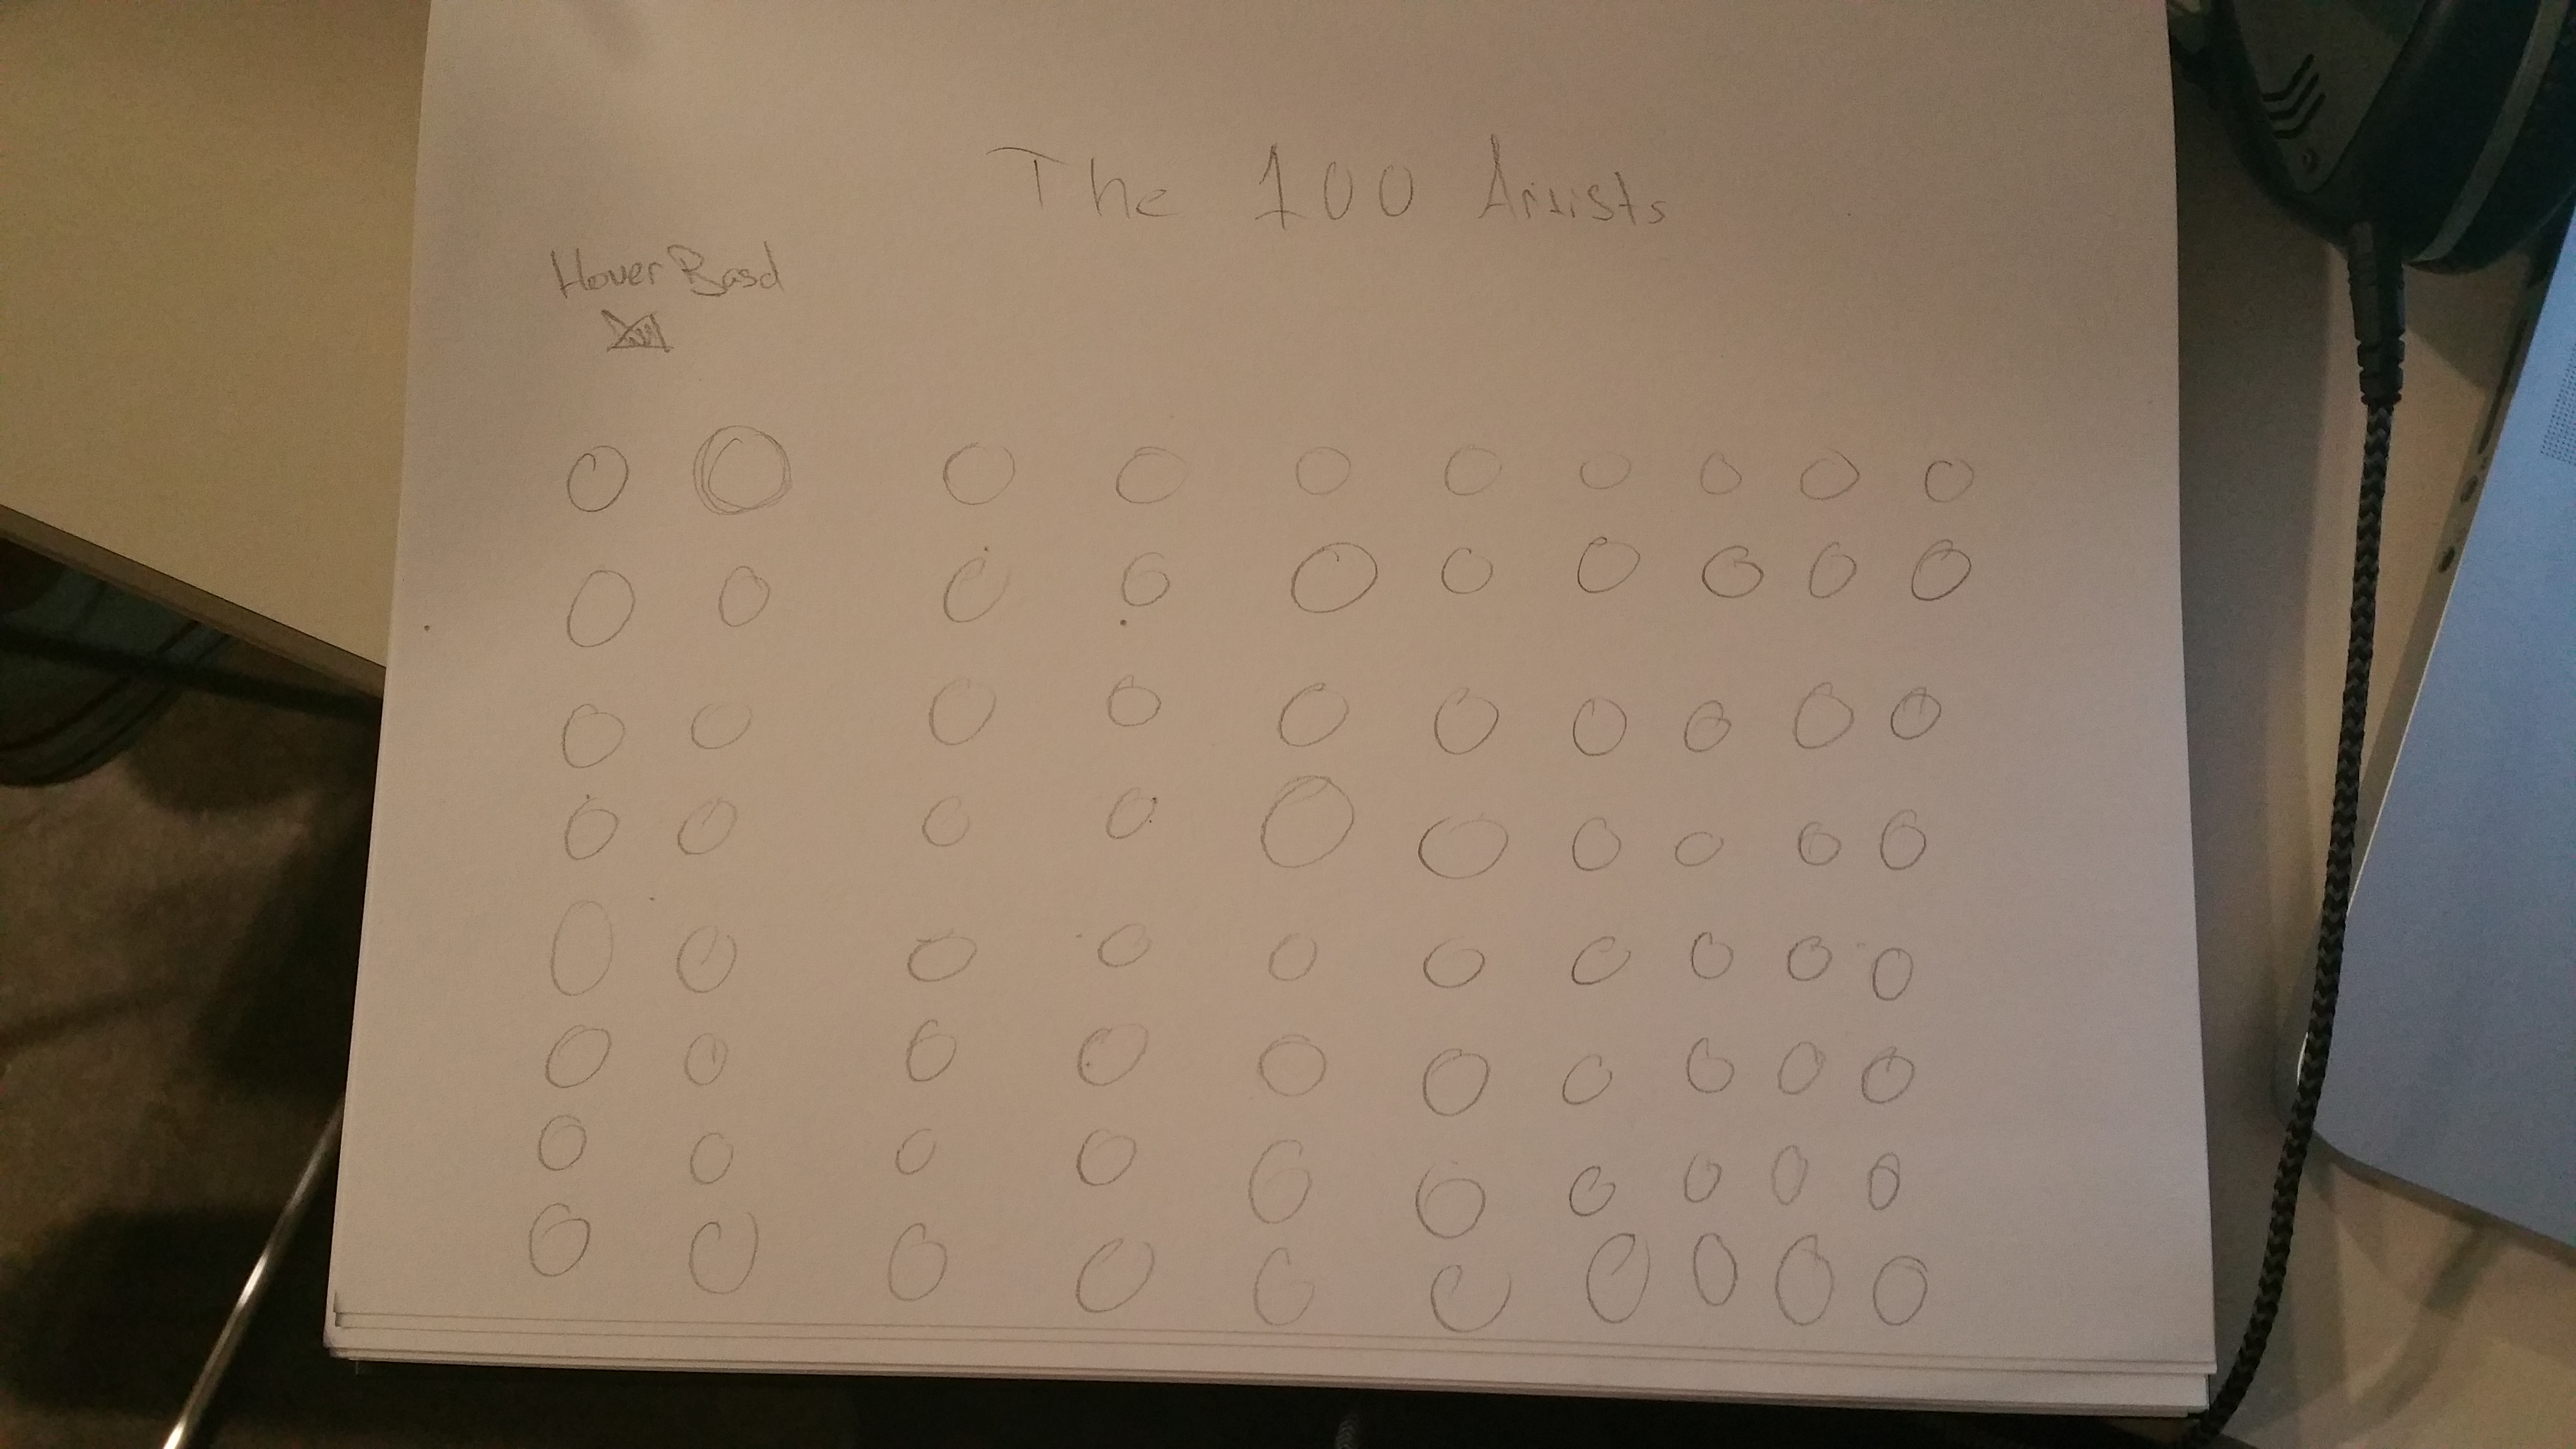 The 100 Artists
Hover Basd